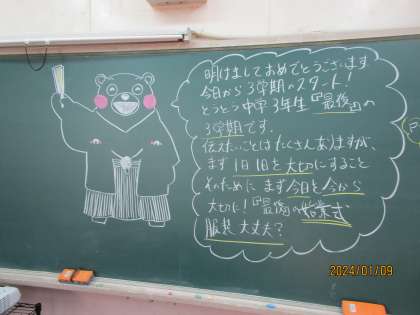 明けましておめでとうございます
今日から3学期のスタート!
とうとう中学3年生「最後」の
3学期です。
伝えたいことはたくさんありますが、
まず1日1日を大切にすること
そのためにまず今日を今から
大切に!「最後」の始業式
服装大丈夫?
2024/01/09